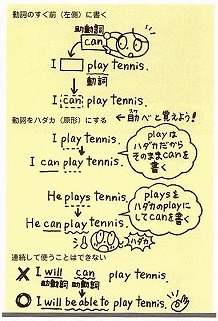 動詞のすぐ前(左側)に書く
助動詞
can
I □ play tennis.
動詞
I can play tennis.
動詞をハダカ(原形)にする
I play tennis.
I can play tennis.
playは
ハダカだから
そのままcanを
書く
He plays tennis.
He can play tennis.
playsを
ハダカのplayに
してcanを書く
ハダカ
連続して使うことはできない
✕ I will can play tennis.
助動詞 助動詞
○ I will be able to play tennis.